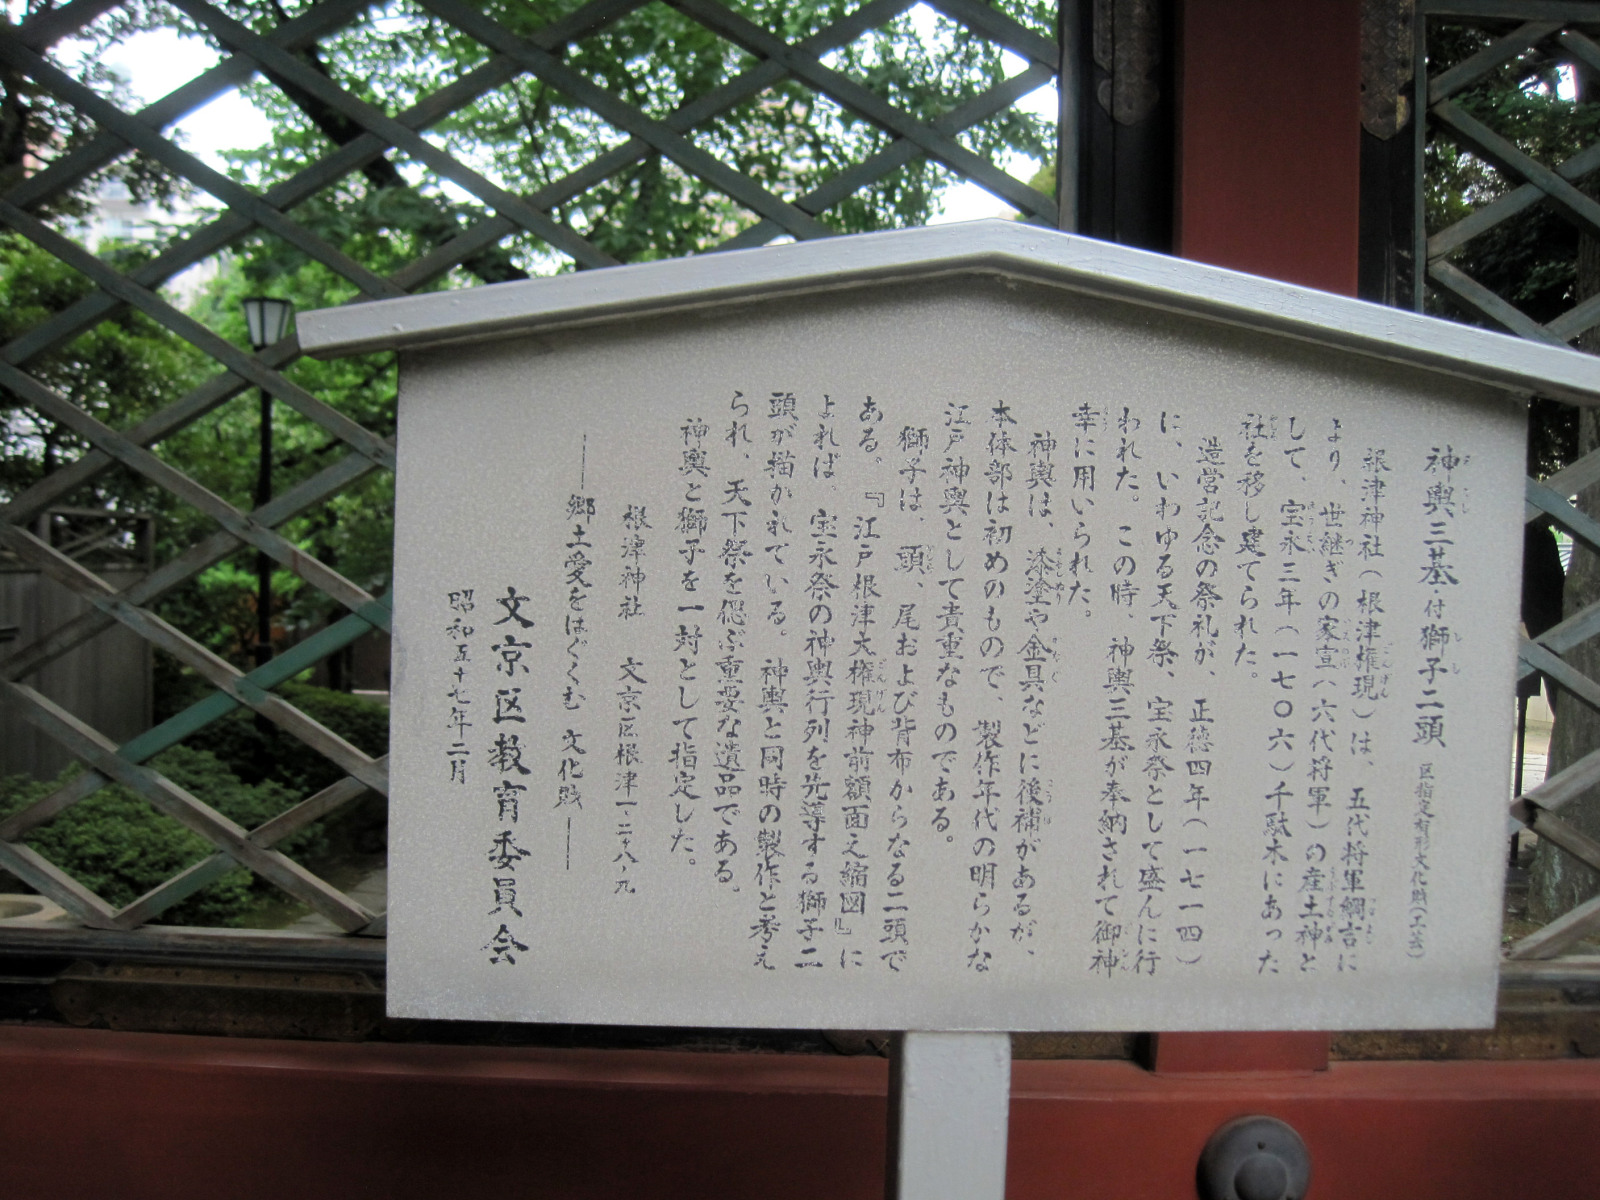 神輿三基・付獅子二頭 区指定有形文化財(工芸)
根津神社(根津権現)は、五代将軍綱吉に
より、世継ぎの家宣(六代将軍)の産土神と
して、宝永三年(一七〇六)千駄木にあった
社を移し建てられた。
造営記念の祭礼が、正徳四年(一七一四)
に、いわゆる天下祭、宝永祭として盛んに行
われた。この時、神輿三基が奉納されて御神
幸に用いられた。
神輿は、漆塗や金具などに後補があるが、
本体部は初めのもので、製作年代の明らかな
江戸神輿として貴重なものである。
獅子は、頭、尾および背布からなる二頭で
ある。『江戸根津大権現神前額面之縮図』に
よれば、宝永祭の神輿行列を先導する獅子二
頭が描かれている。神輿と同時の製作と考え
られ、天下祭を偲ぶ重要な遺品である。
神輿と獅子を一対として指定した。
根津神社 文京区根津一-二十八-九
―郷土愛をはぐくむ 文化財―
文京区教育委員会
昭和五十七年二月